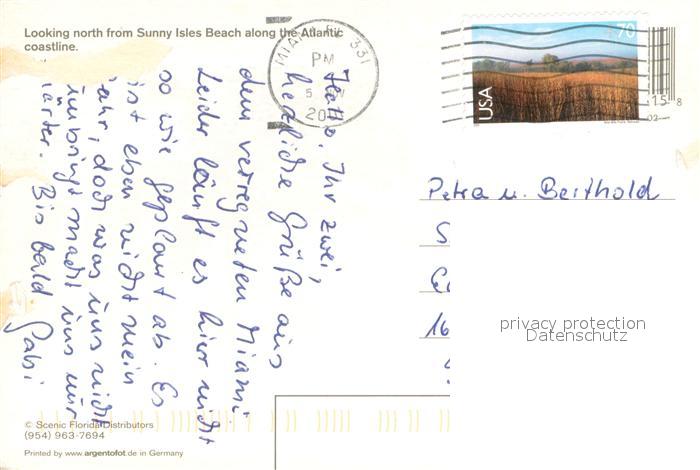 Looking north from Sunny Isles Beach along the Atlantic
coastline.
MIAMI FL 331
PM
5
20
70
USA
15
8
Hallo, Ihr zwei,
herzliche Grüße aus
dem verregneten Miami.
Leider läuft es hier nicht
so wie geplant ab. Es
ist eben nicht mein
Jahr, doch was uns nicht
umbringt macht uns nur
härter. Bis bald Gabi
Petra u. Berthold
16
privacy protection
Datenschutz
© Scenic Florida Distributors
(954) 963-7694
Printed by www.argentofot.de in Germany